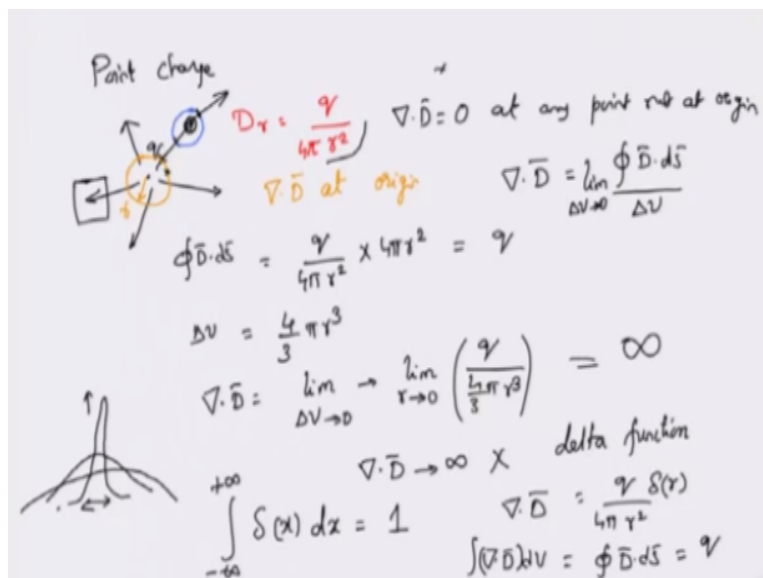 Point charge
q
r
D_r = q / 4πr²
∇·D̄ = 0 at any point not at origin
∇·D̄ at origin
∇·D̄ = lim ΔV→0 ∮D̄·ds̄ / ΔV
∮D̄·ds̄ = q / 4πr² × 4πr² = q
ΔV = 4/3 πr³
∇·D̄ = lim ΔV→0 → lim r→0 (q / 4/3 πr³) = ∞
∇·D̄ → ∞ X delta function
∫_{-∞}^{+∞} δ(x) dx = 1
∇·D̄ = q δ(r) / 4πr²
∫(∇·D̄)dV = ∮D̄·ds̄ = q